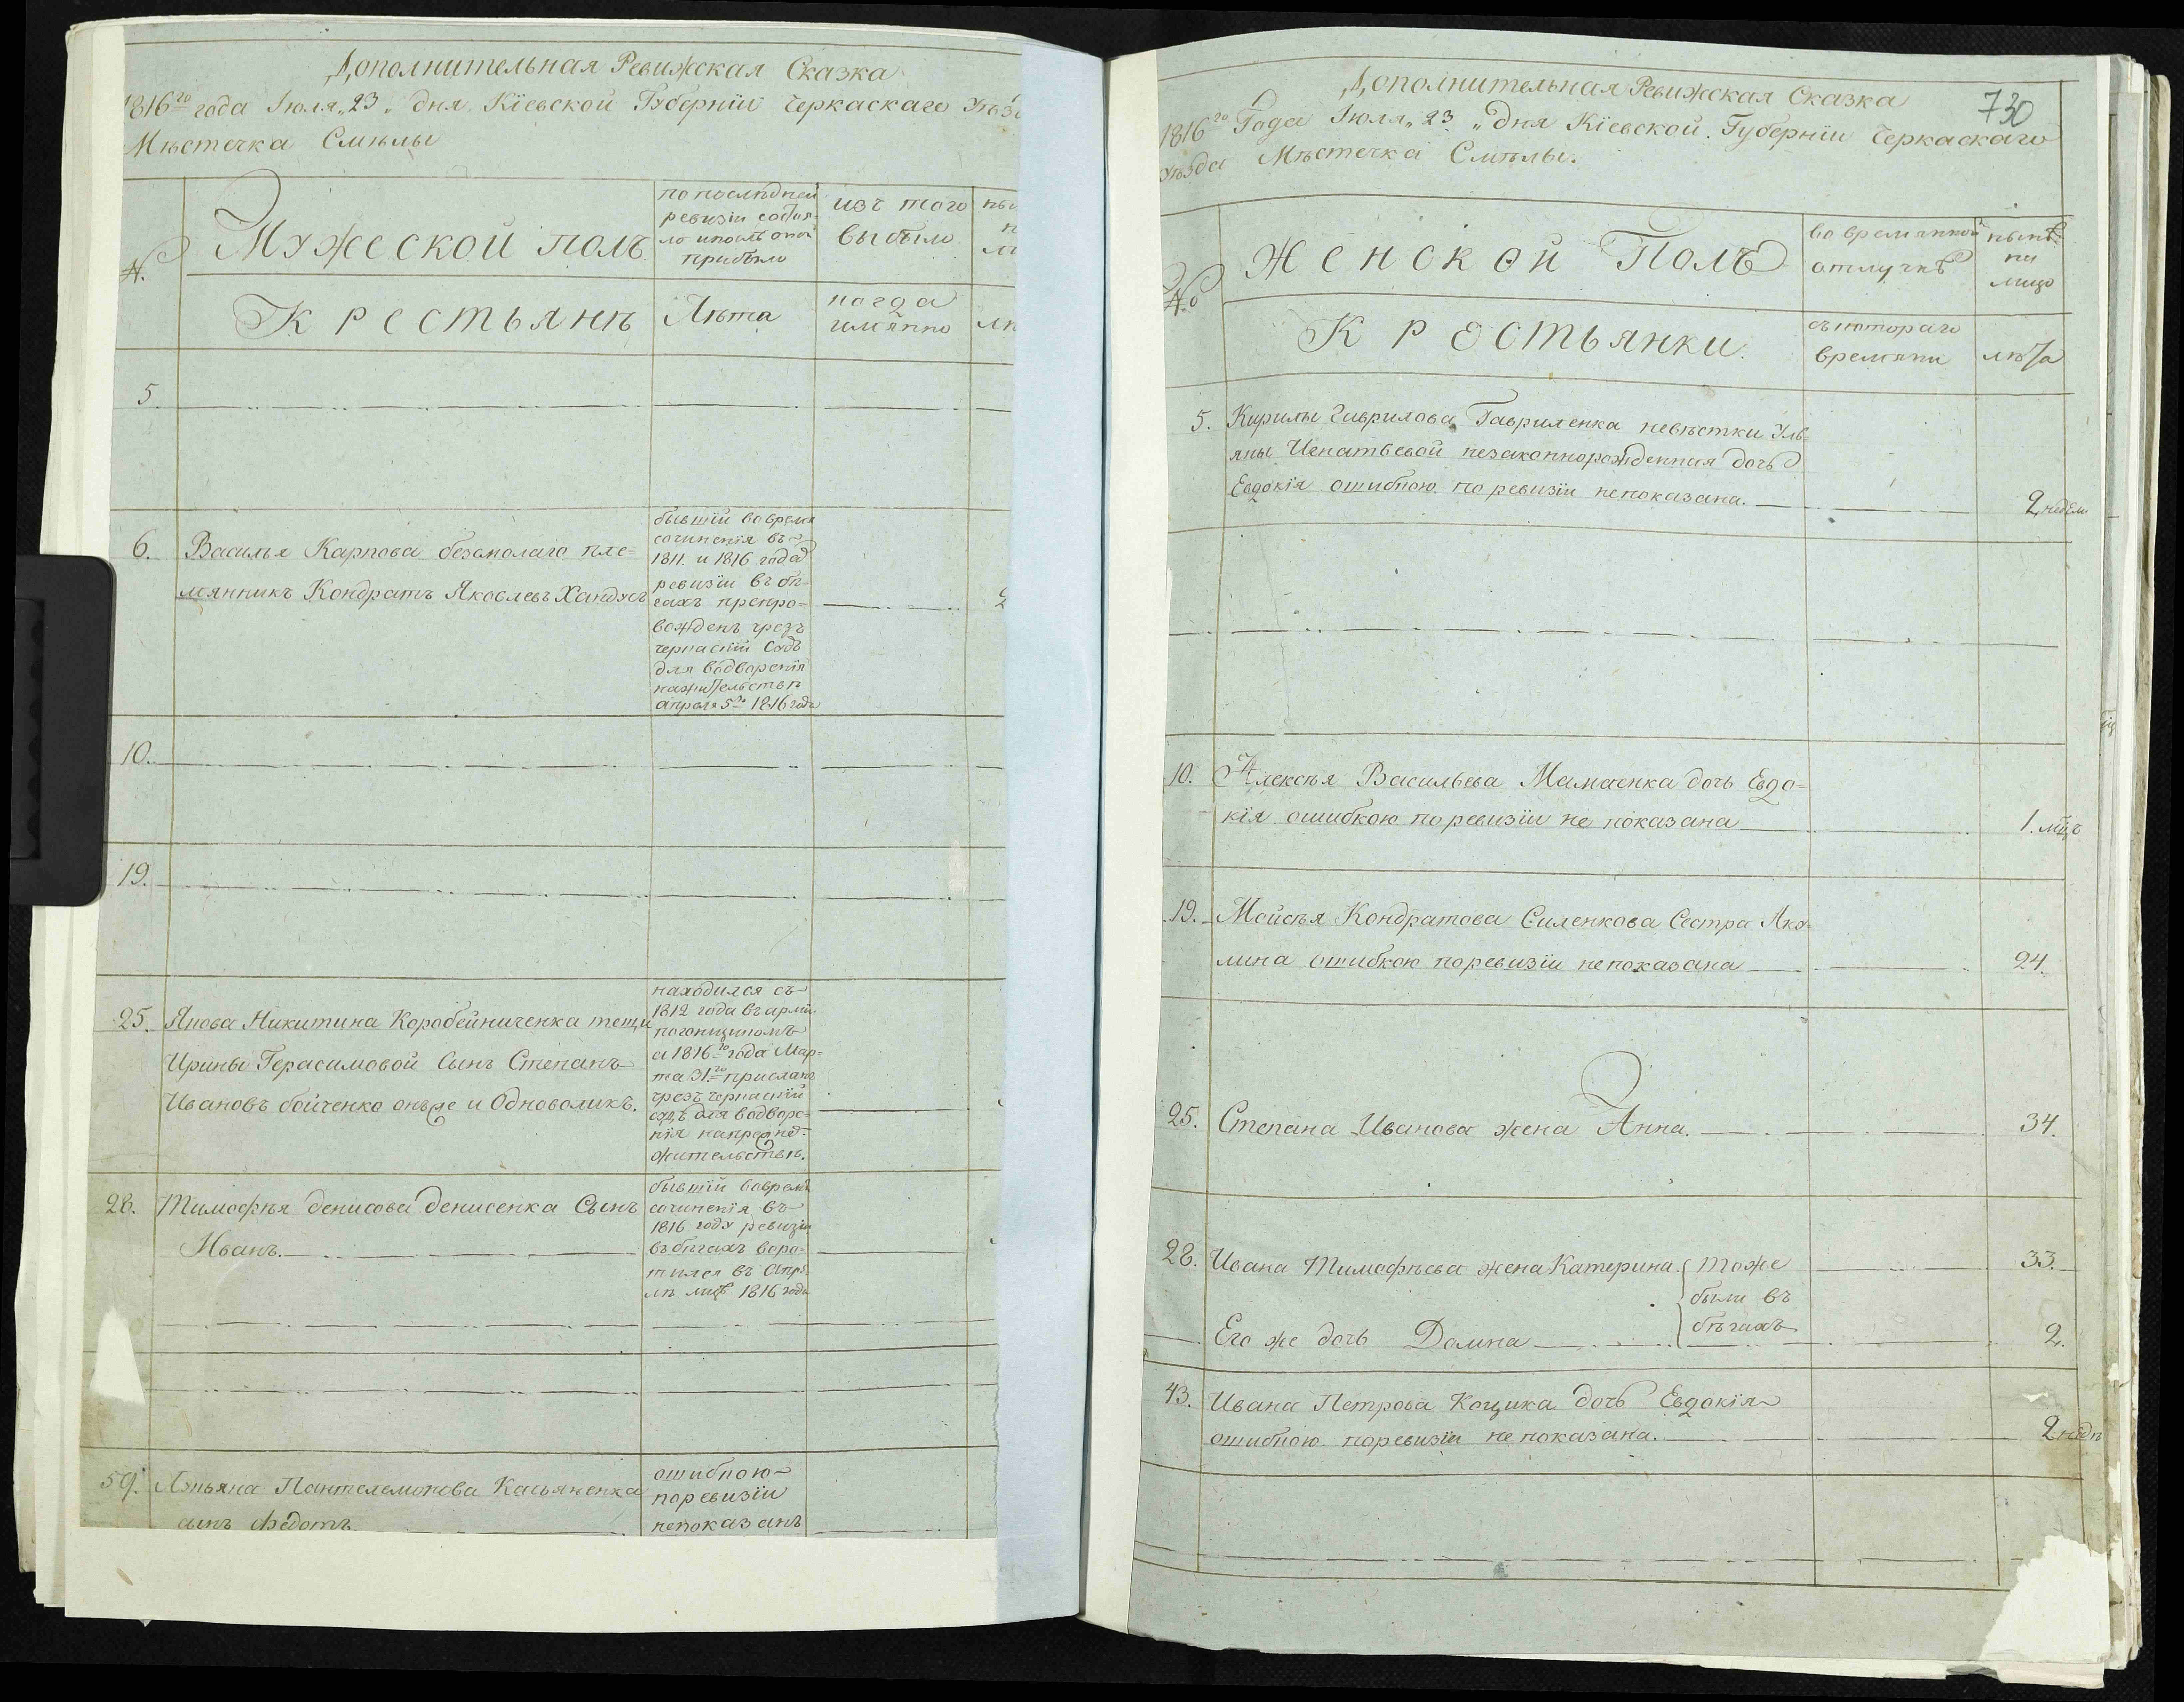 Дополнительная Ревижская Сказка
1816го года Іюля „23„ дня Кіевской Губерніи Черкаскаго
Мѣстечка Смѣлы
№
Мужеской полъ
по послѣдней
ревизіи состоя-
ло и послѣ оной
прибыло
изъ того
выбыло
Крестьянѣ
Лѣта
когда
имянно
5.
6. Василья Карпова безъмолаго пле-
мянникъ Кондратъ Яковлевъ Хандусъ
бывшій во время
сочиненія въ
1811. и 1816 годах
ревизіи въ бѣ-
гахъ препро-
вожденъ чрезъ
черкаскій Судъ
для водворенія
на жительствѣ
апреля 5го 1816 года
10.
19.
25. Якова Никитина Коробейниченка тещи
Ирины Герасимовой Сынъ Степанъ
Ивановъ бойченко онъ же и Одноволикъ.
находился съ
1812 года въ арміи
погонщикомъ
а 1816го года Мар-
та 31го присланъ
чрезъ черкаскій
судъ для водворе-
нія на прежнед
жительствѣ.
28. Тимофѣя денисова денисенка Сынъ
Иванъ.
бывшій во время
сочиненія въ
1816 году ревизіи
въ бѣгахъ воро-
тился въ Апре-
лѣ мцѣ 1816 года
59. Пантелемонова Касьяненка
сынъ Федотъ
ошибкою
по ревизіи
непоказанъ
Дополнительная Ревижская Сказка
730
1816го Года Іюля „23„ дня Кіевской Губерніи Черкаскаго
уѣзда Мѣстечка Смѣлы.
№
Женской Полъ
во времянной
отлучкѣ
нынѣ
на
лицо
Крестьянки.
съ котораго
времяни
лѣта
5. Кирилы Гаврилова Гавриленка невѣстки Уль-
яны Игнатьевой незаконнорожденная дочь
Евдокія ошибкою по ревизіи непоказана. 2 недел.
10. Алексѣя Васильева Мамаенка дочь Евдо-
кія ошибкою по ревизіи не показана 1. мцъ
19. Мойсѣя Кондратова Силенкова Сестра Аку-
лина ошибкою по ревизіи непоказана 24.
25. Степана Иванова жена Анна. 34.
28. Ивана Тимофѣева жена Катерина. тоже 33.
были въ
бѣгахъ
Его же дочь Домна 2.
43. Ивана Петрова Коцика дочь Евдокія
ошибкою по ревизіи не показана. 2 недѣ